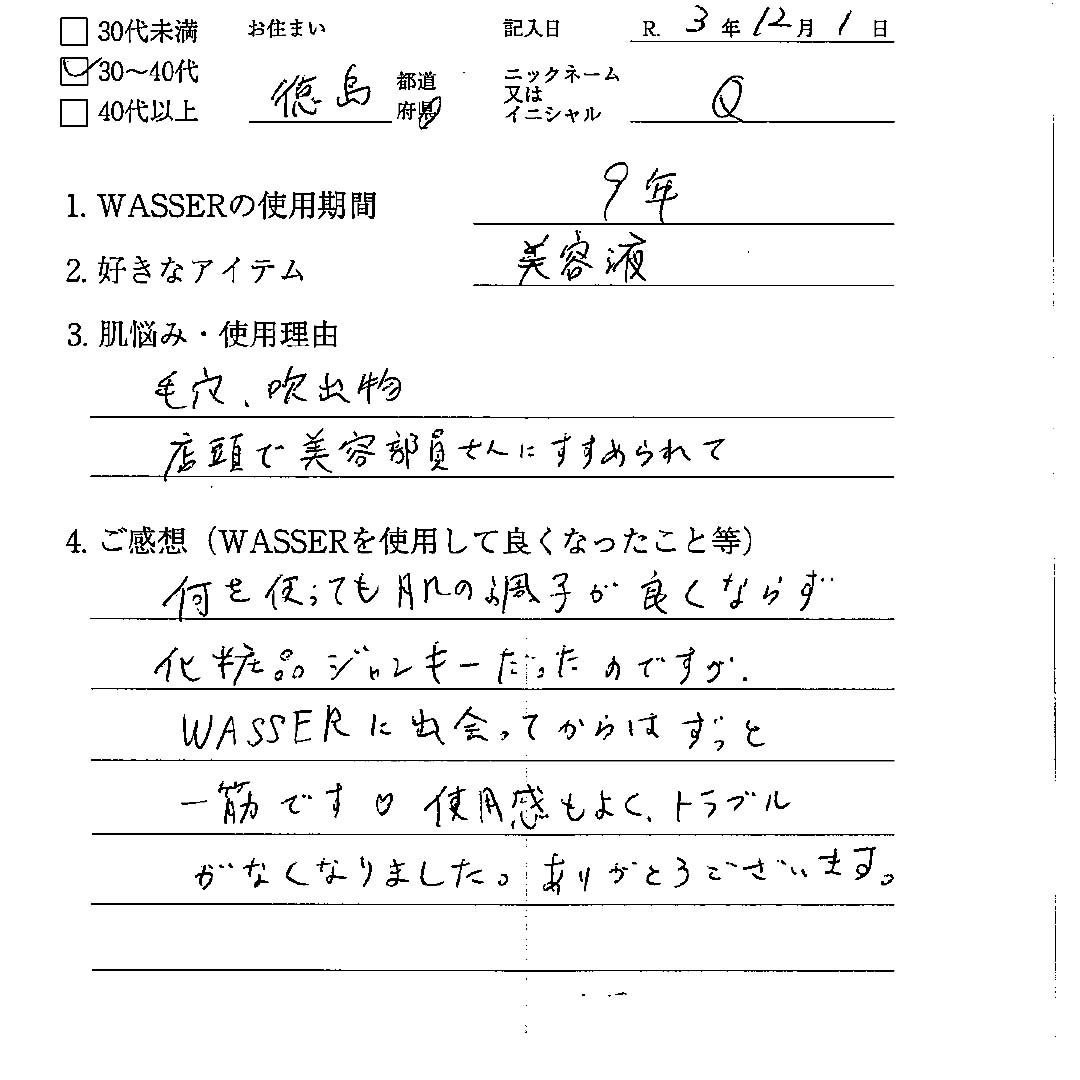 □ 30代未満 お住まい 記入日 R. 3年12月1日
☑ 30～40代 徳島 都道府県 ニックネーム又はイニシャル Q
□ 40代以上
1. WASSERの使用期間 9年
2. 好きなアイテム 美容液
3. 肌悩み・使用理由
毛穴、吹出物
店頭で美容部員さんにすすめられて
4. ご感想（WASSERを使用して良くなったこと等）
何を使っても肌の調子が良くならず
化粧品ジャンキーだったのですが、
WASSERに出会ってからはずっと
一筋です♡ 使用感もよく、トラブル
がなくなりました。ありがとうございます。